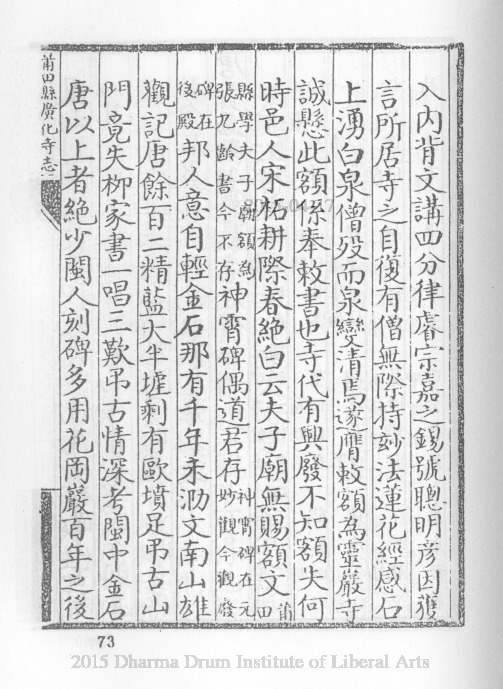 入內背文講四分律睿宗嘉之錫號聰明彥因獲
言所居寺之自復有僧無際持妙法蓮花經感石
上湧白泉僧歿而泉變清焉遂膺敕額為靈巖寺
誠懸此額係奉敕書也寺代有興廢不知額失何
時邑人宋柘耕際春絕句云夫子廟無賜額文莆田
縣學夫子廟額為張九齡書今不存神霄碑偶道君存神霄碑在元妙觀今觀廢
碑在後殿邦人意自輕金石那有千年未泐文南山雄
觀記唐餘百二精藍大半墟剩有歐墳足弔古山
門竟失柳家書一唱三歎弔古情深考閩中金石
唐以上者絕少閩人刻碑多用花岡巖百年之後
莆田縣廣化寺志
73
2015 Dharma Drum Institute of Liberal Arts